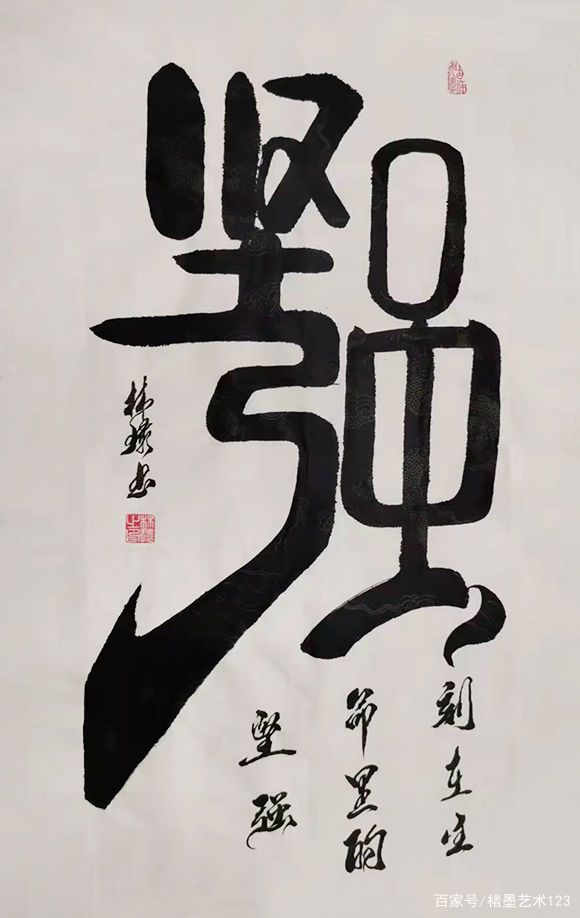 坚强
刻在生
命里的
坚强
林书
百家号/楮墨艺术123